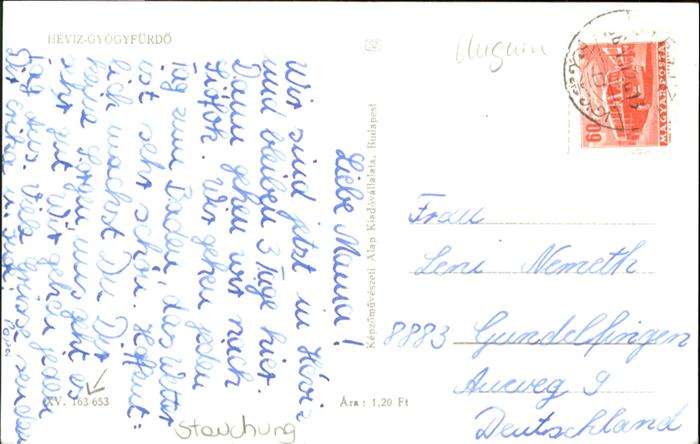 HÉVIZ-GYÓGYFÜRDŐ
Liebe Mama!
Wir sind jetzt in Héviz
und bleiben 3 Tage hier.
Dann gehen wir nach
Siófok. Wir gehen jeden
Tag zum Baden, das Wetter
ist sehr schön. Hoffent=
lich machst Du Dir
keine Sorgen, uns geht es
sehr gut. Wir gehen jeden
Tag aus. Viele Grüsse senden
Dir Erika u.
XV. 163 653
Képzőművészeti Alap Kiadóvállalata, Budapest
Ára : 1,20 Ft
Stauchung
Ungarn
60f
MAGYAR POSTA
Frau
Leni Nemeth
8883 Gundelfingen
Aueweg 9
Deutschland